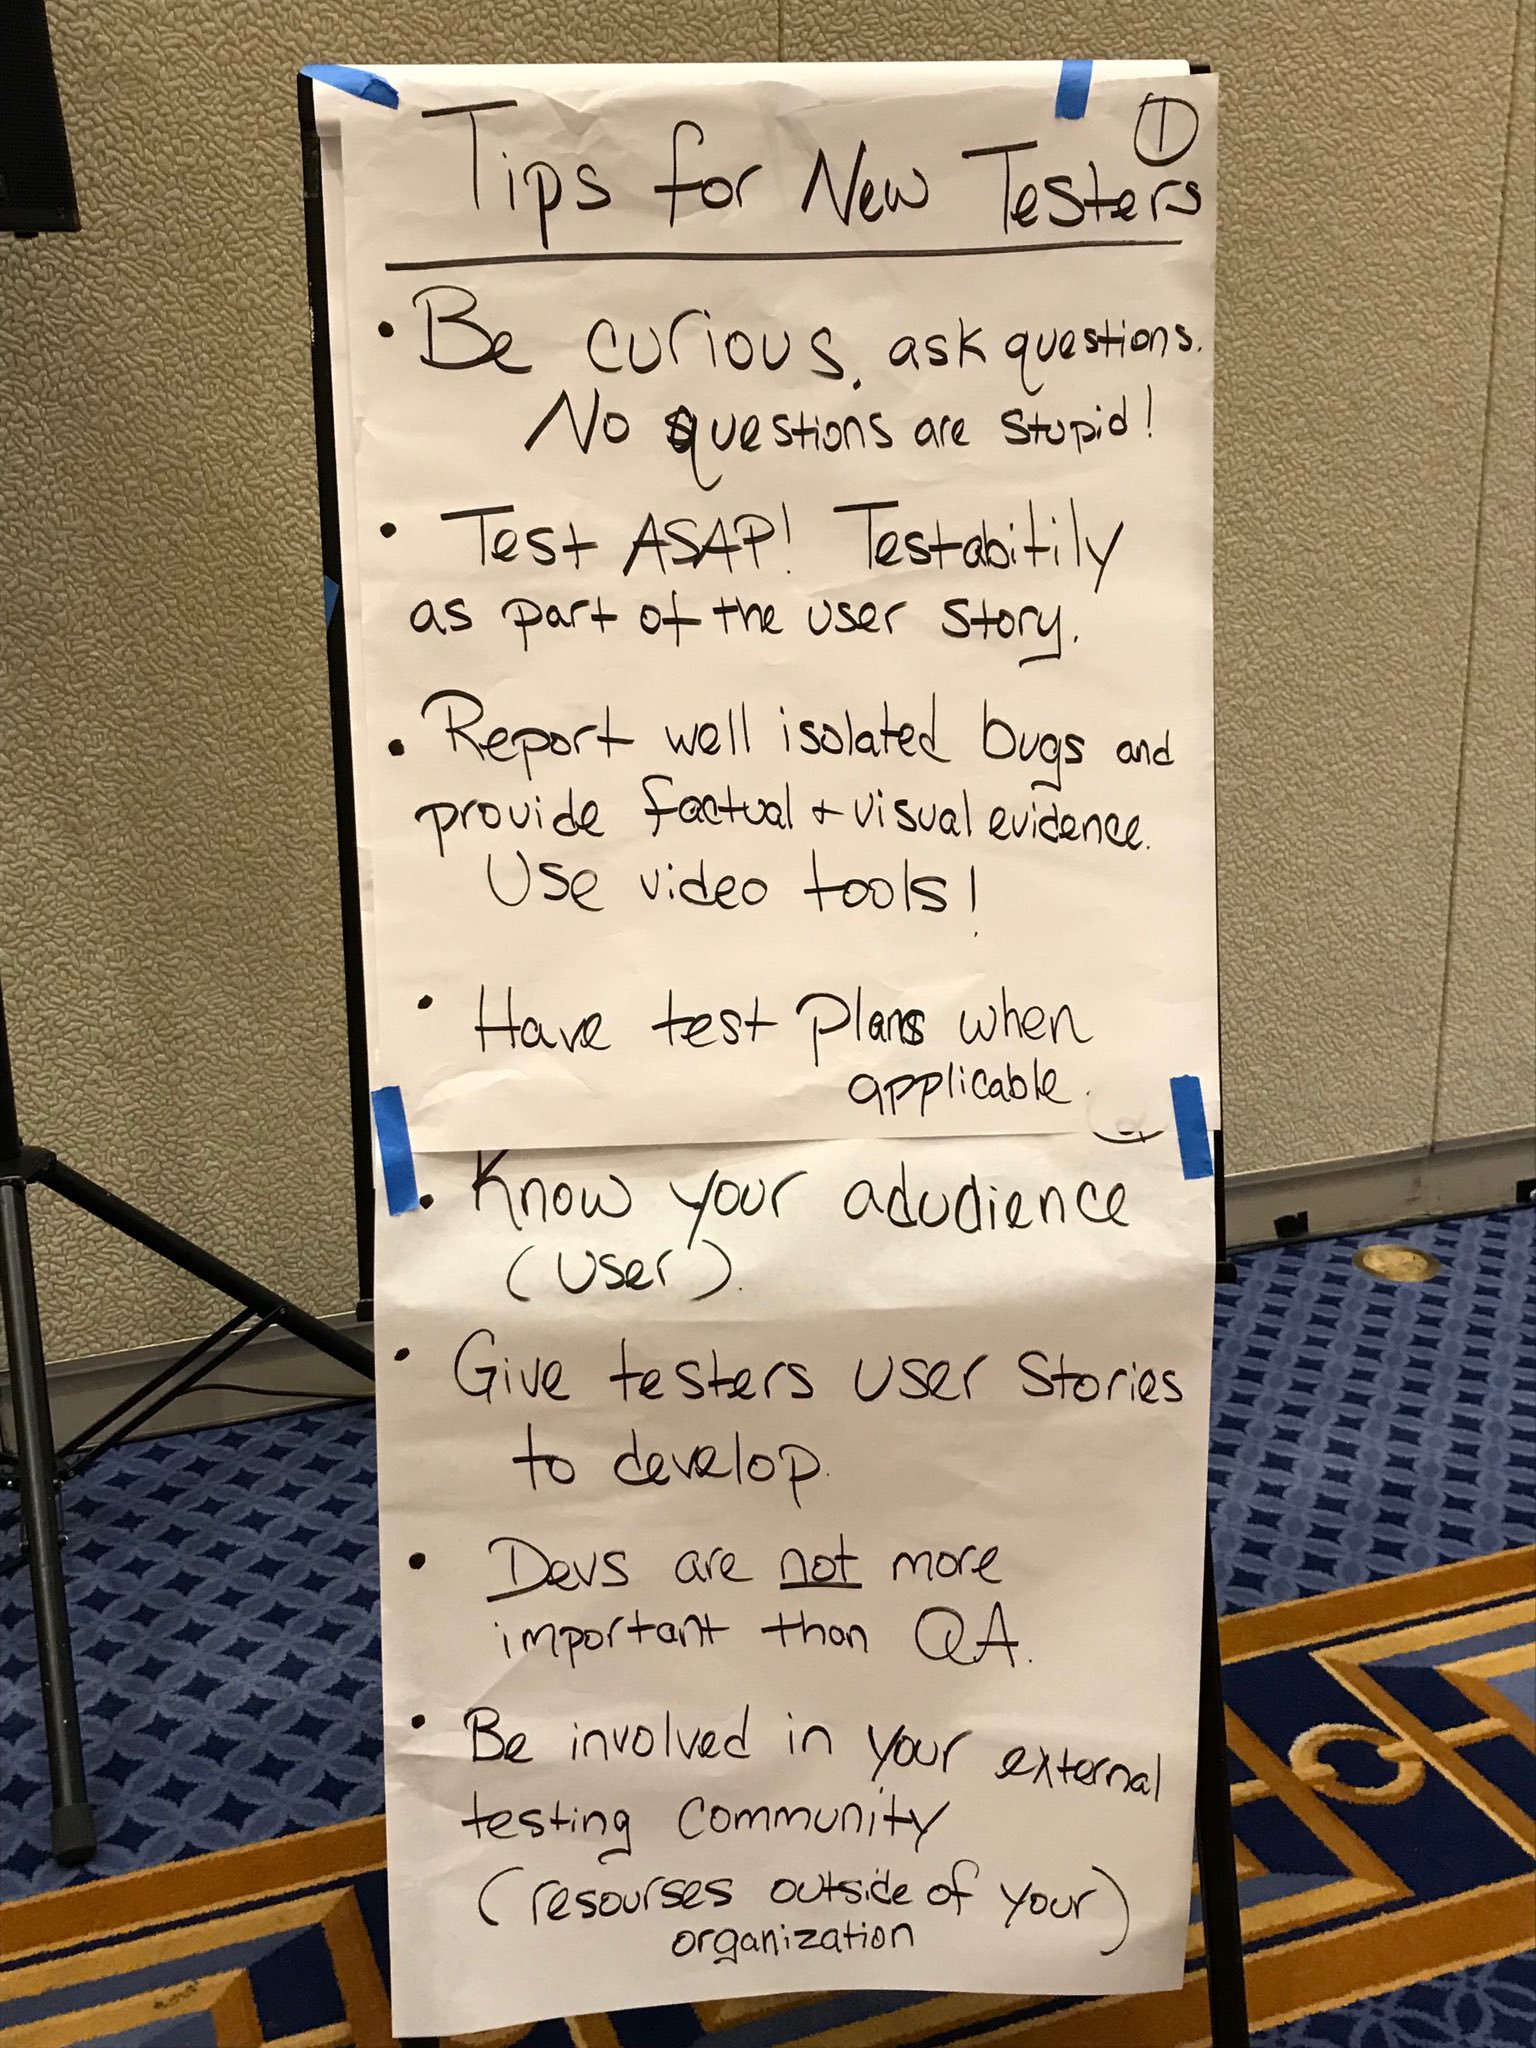 1
Tips for New Testers
• Be curious, ask questions.
No questions are stupid!
• Test ASAP! Testabitily
as part of the user story.
• Report well isolated bugs and
provide factual + visual evidence.
Use video tools!
• Have test plans when
applicable.
• Know your adudience
(user).
• Give testers user stories
to develop.
• Devs are not more
important than QA.
• Be involved in your external
testing community
(resourses outside of your)
organization